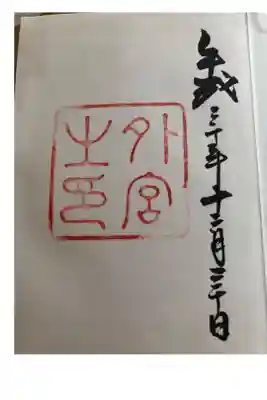 平成三十年十二月三十日
外宮
之印